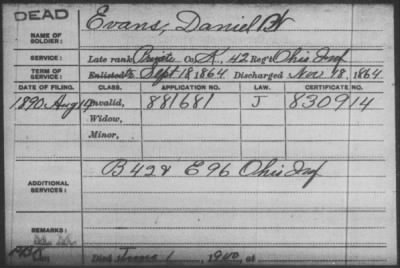 DEAD
NAME OF SOLDIER: Evans, Daniel W
SERVICE: Late rank Private Co. K, 42 Reg't Ohio Inf
TERM OF SERVICE: Enlisted Sept 18 1864 Discharged Nov. 18, 1864
DATE OF FILING. CLASS. APPLICATION NO. LAW. CERTIFICATE NO.
1890. Aug 14 Invalid, 881681 J 830914
Widow,
Minor,
ADDITIONAL SERVICES: B 42 & E 96 Ohio Inf
REMARKS:
Died June 1, 1900, at